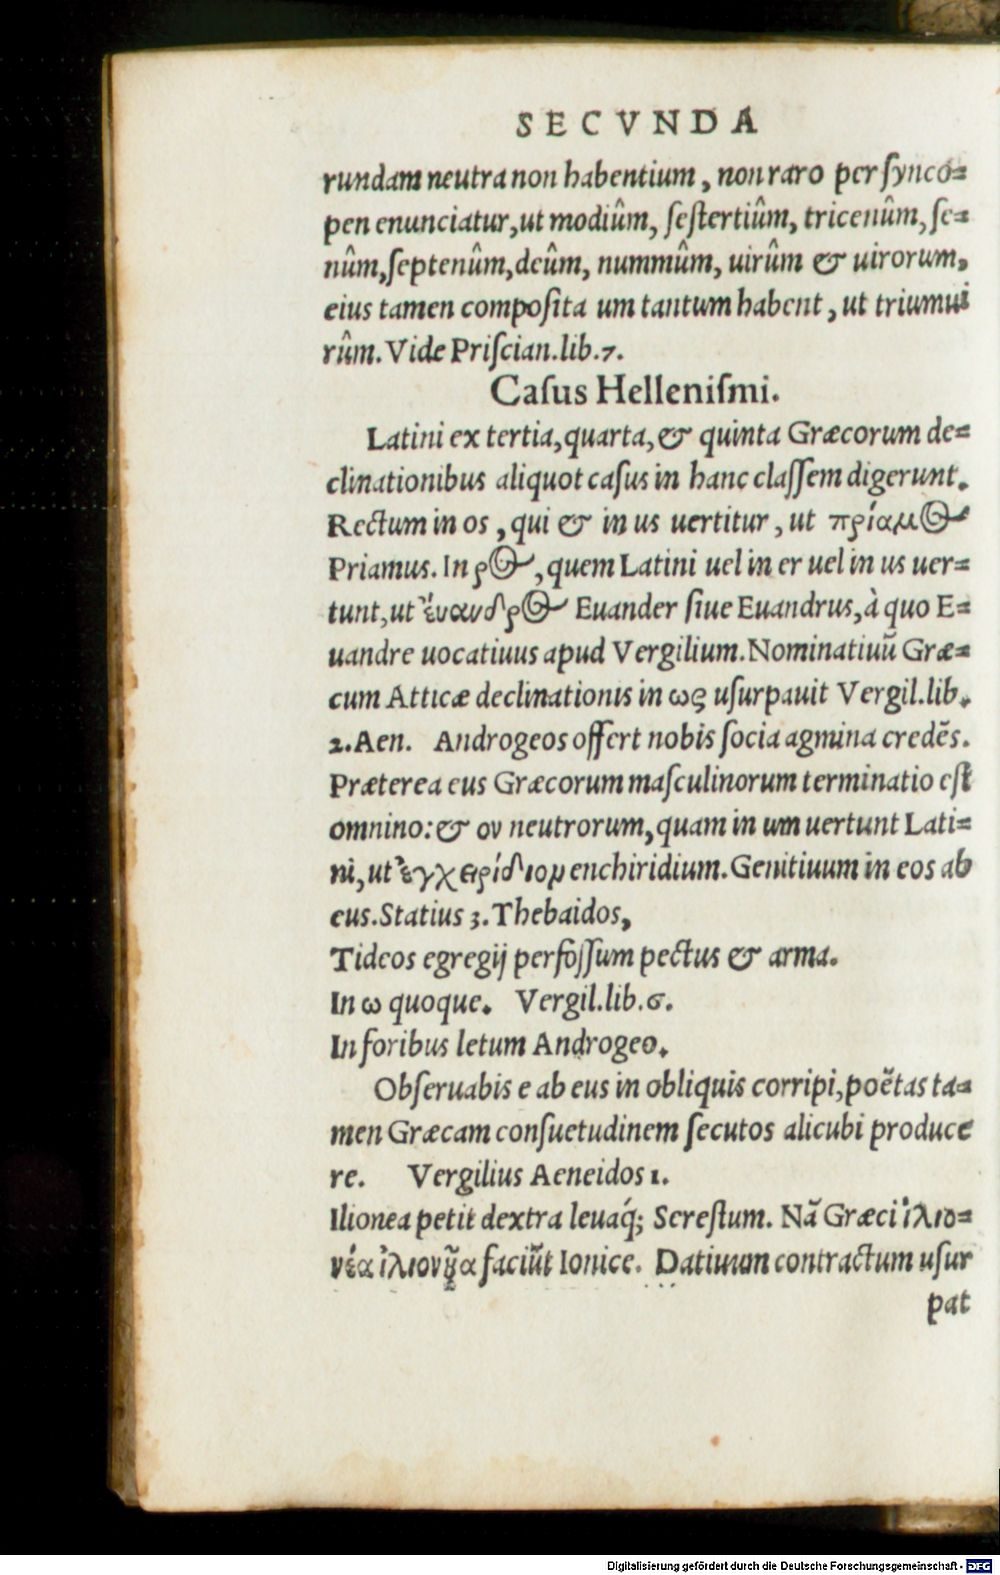 SECVNDA
rundam neutra non habentium, non raro per ſynco=
pen enunciatur, ut modiûm, ſeſtertiûm, tricenûm, ſe=
nûm, ſeptenûm, deûm, nummûm, uirûm & uirorum,
eius tamen compoſita um tantum habent, ut triumui
rûm. Vide Priſcian. lib. 7.
Caſus Helleniſmi.
Latini ex tertia, quarta, & quinta Græcorum de=
clinationibus aliquot caſus in hanc claſſem digerunt.
Rectum in os, qui & in us uertitur, ut πρίαμος
Priamus. In ρος, quem Latini uel in er uel in us uer=
tunt, ut ἔυανδρος Euander ſiue Euandrus, à quo E=
uandre uocatiuus apud Vergilium. Nominatiuũ Græ=
cum Atticæ declinationis in ως uſurpauit Vergil. lib.
2. Aen. Androgeos offert nobis ſocia agmina credẽs.
Præterea eus Græcorum maſculinorum terminatio eſt
omnino: & ον neutrorum, quam in um uertunt Lati=
ni, ut ἐγχειρίδιον enchiridium. Genitiuum in eos ab
eus. Statius 3. Thebaidos,
Tideos egregij perfoſſum pectus & arma.
In ω quoque. Vergil. lib. 6.
In foribus letum Androgeo.
Obſeruabis e ab eus in obliquis corripi, poëtas ta=
men Græcam conſuetudinem ſecutos alicubi produce
re. Vergilius Aeneidos 1.
Ilionea petit dextra leuaq́; Sereſtum. Nã Græci ἰλιο=
νέα ἰλιονῆα faciũt Ionice. Datiuum contractum uſur
pat
Digitalisierung gefördert durch die Deutsche Forschungsgemeinschaft - DFG